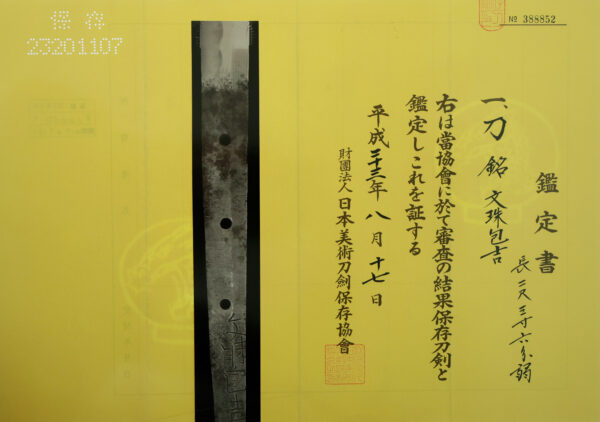 保存
23201107
№ 388852
鑑定書
一、刀 銘 文珠包吉
長二尺三寸六分弱
右は當協會に於て審査の結果保存刀剣と
鑑定しこれを証する
平成二十三年八月十七日
財團法人 日本美術刀劍保存協會